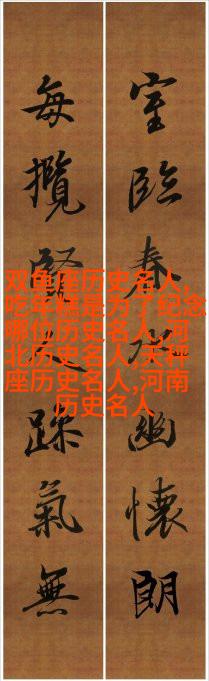 室臨春水幽懷朗
每攬賢躁氣無
双鱼座历史名人,
吃年糕是为了纪念
哪位历史名人,河
北历史名人,天秤
座历史名人,河南
历史名人